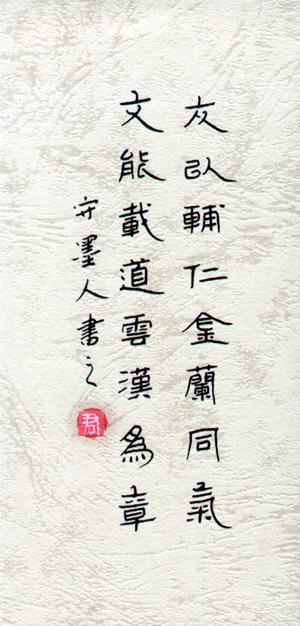 友以輔仁金蘭同氣
文能載道雲漢為章
守墨人書之
君